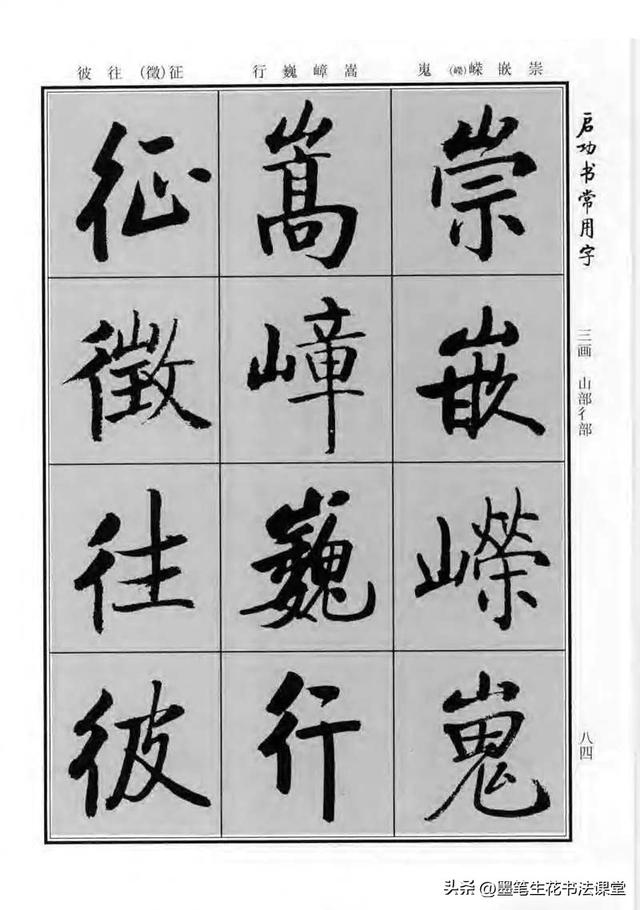 启功书常用字
三画 山部彳部
八四
崇嵌嵘(嶸)嵬
嵩嶂巍行
征(徵)往彼
崇
嵌
嶸
嵬
嵩
嶂
巍
行
征
徵
往
彼
头条 @墨笔生花书法课堂